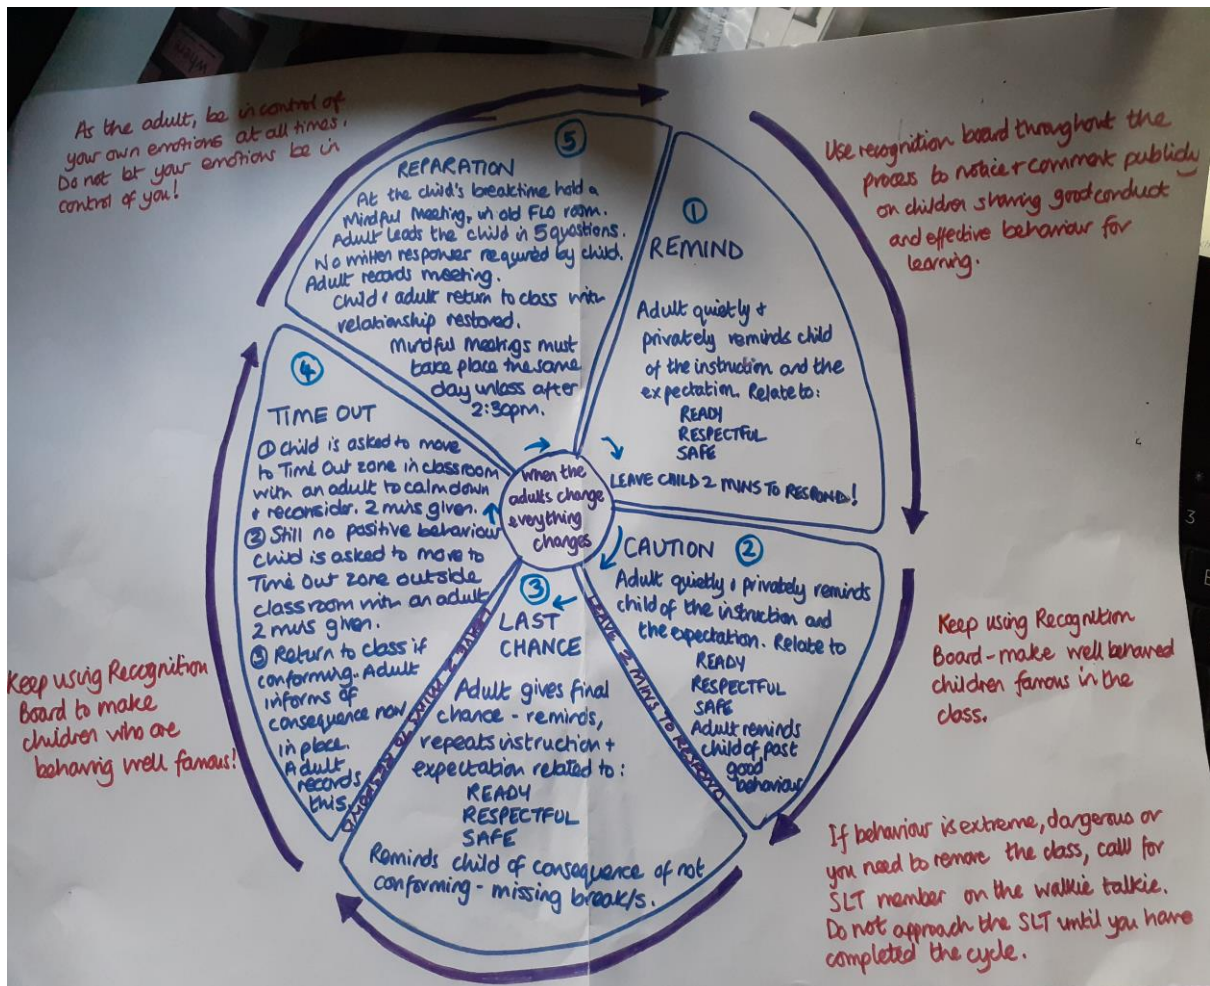 when
As the adult, be in control of
your own emotions at all times.
Do not let your emotions be in
control of you!
Use recognition board throughout the
process to notice + comment publicly
on children sharing good conduct
and effective behaviour for
learning.
①
REMIND
Adult quietly +
privately reminds child
of the instruction and the
expectation. Relate to:
READY
RESPECTFUL
SAFE
LEAVE CHILD 2 MINS TO RESPOND!
CAUTION ②
Adult quietly + privately reminds
child of the instruction and
the expectation. Relate to
READY
RESPECTFUL
SAFE
Adult reminds
child of past
good
behaviour
LEAVE 2 MINS TO RESPOND
③
LAST
CHANCE
Adult gives final
chance - reminds,
repeats instruction +
expectation related to:
READY
RESPECTFUL
SAFE
Reminds child of consequence of not
conforming - missing break/s.
LEAVE 2 MINS TO RESPOND
④
TIME OUT
① Child is asked to move
to Time Out zone in classroom
with an adult to calm down
+ reconsider. 2 mins given.
② Still no positive behaviour
child is asked to move to
Time Out zone outside
classroom with an adult
2 mins given.
③ Return to class if
conforming. Adult
informs of
consequence now
in place.
Adult
records
this.
⑤
REPARATION
At the child's breaktime hold a
Mindful Meeting, in old FLO room.
Adult leads the child in 5 questions.
No written responses required by child.
Adult records meeting.
Child + adult return to class with
relationship restored.
Mindful Meetings must
take place the same
day unless after
2:30pm.
When the
adults change
everything
changes
Keep using Recognition
Board - make well behaved
children famous in the
class.
Keep using Recognition
Board to make
children who are
behaving well famous!
If behaviour is extreme, dangerous or
you need to remove the class, call for
SLT member on the walkie talkie.
Do not approach the SLT until you have
completed the cycle.
3